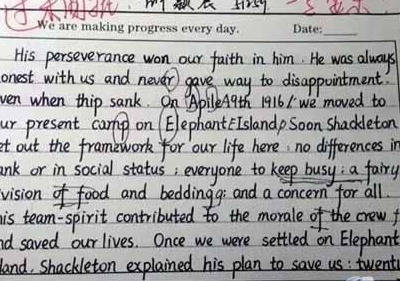 We are making progress every day. Date:
His perseverance won our faith in him. He was always
onest with us and never gave way to disappointment.
ven when thip sank. On Apile 19th 1916, we moved to
ur present camp on Elephant Island, Soon Shackleton
et out the framework for our life here: no differences in
ank or in social status; everyone to keep busy; a fairy
vision of food and bedding; and a concern for all.
is team-spirit contributed to the morale of the crew
nd saved our lives. Once we were settled on Elephant
land, Shackleton explained his plan to save us: twent